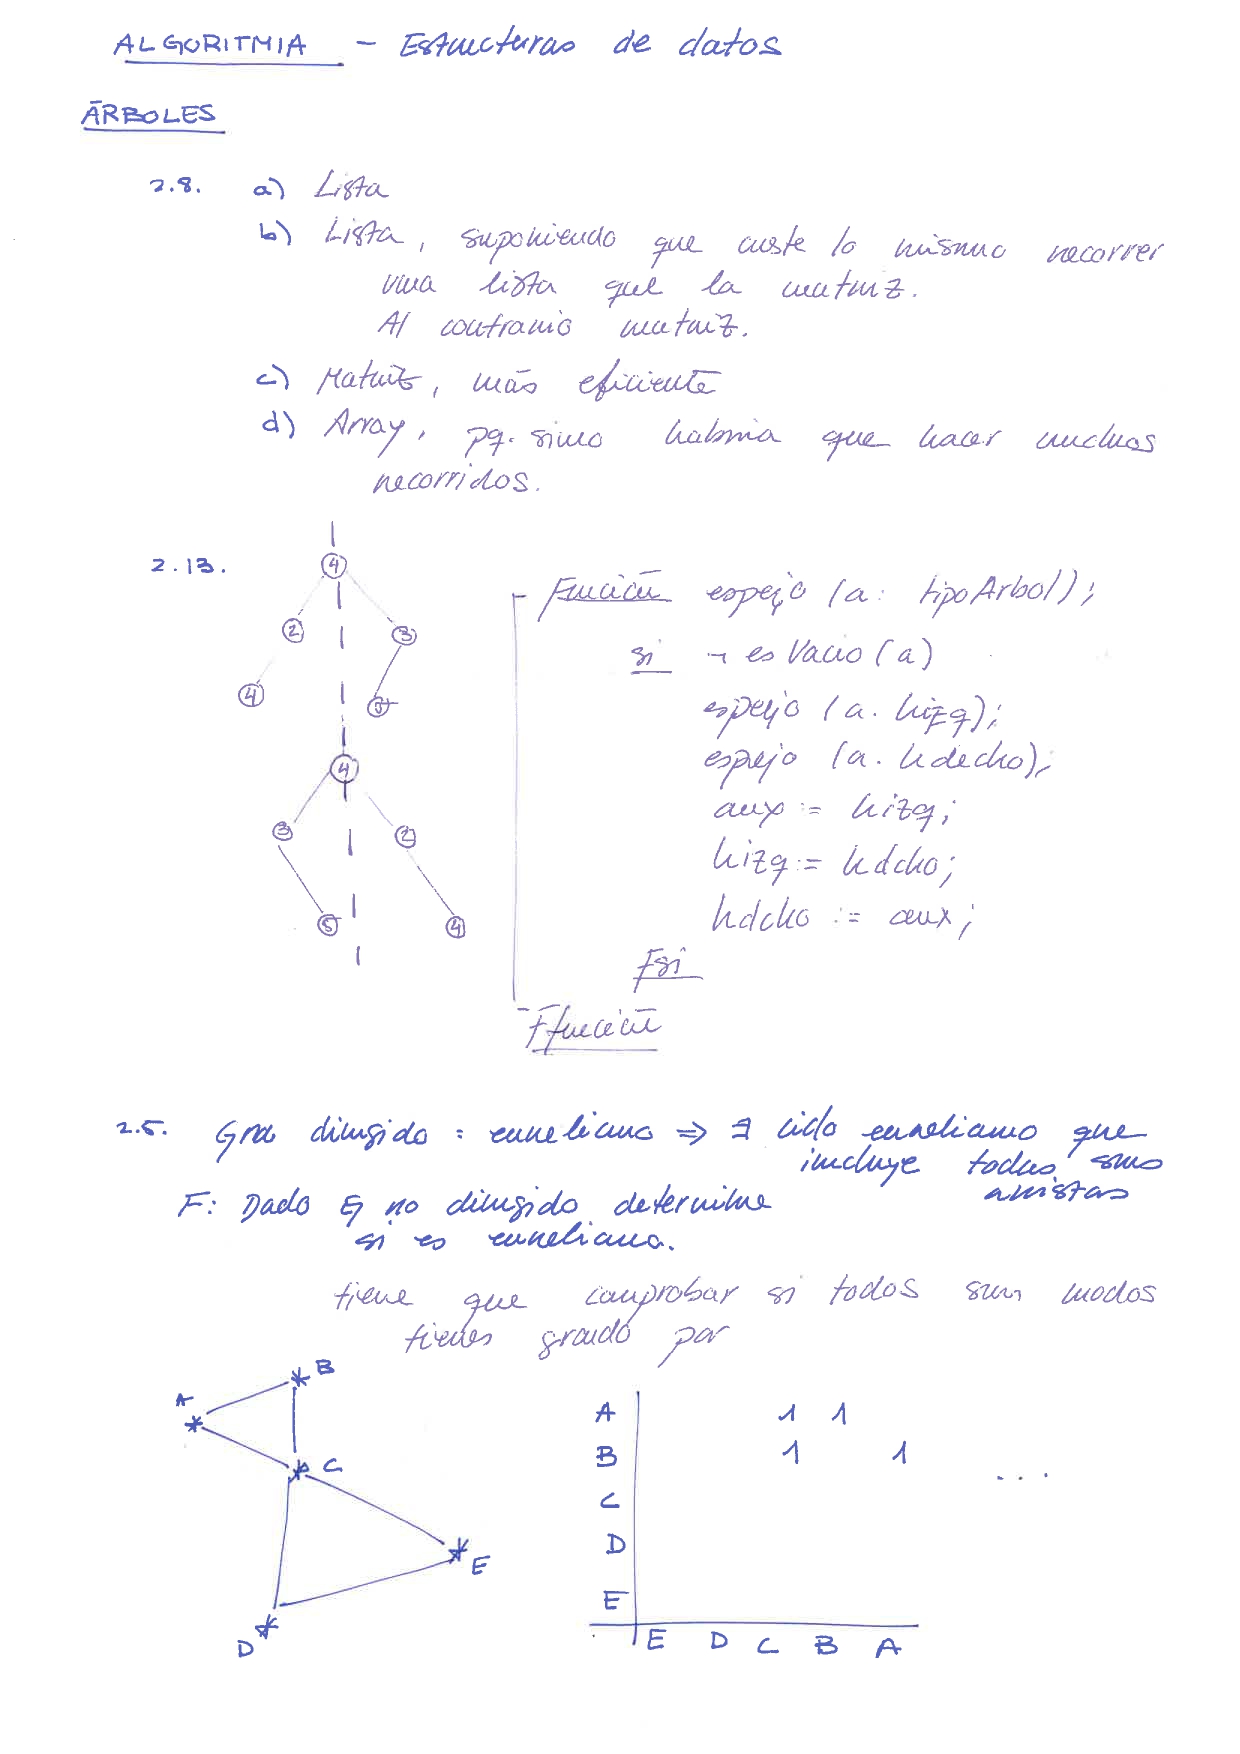 ALGORITMIA - Estructuras de datos
ÁRBOLES
2.8. a) Lista
b) Lista, suponiendo que cueste lo mismo recorrer
una lista que la matriz.
Al contrario matriz.
c) Matriz, más eficiente
d) Array, pq. sino habría que hacer muchos
recorridos.
2.13.
4
2 3
4 5
4
3 2
5 4
Función espejo (a: tipoArbol);
si ¬ esVacio (a)
espejo (a. hizq);
espejo (a. hdecho);
aux := hizq;
hizq := hdcho;
hdcho := aux;
Fsi
Ffunción
2.5. Gra dirigido = euneliano => ∃ ciclo euneliano que
incluye todas sus
aristas
F: Dado G no dirigido determine
si es euneliano.
tiene que comprobar si todos sus nodos
tienen grado par
A B C D E
A 1 1
B 1 1 ...
C
D
E
E D C B A